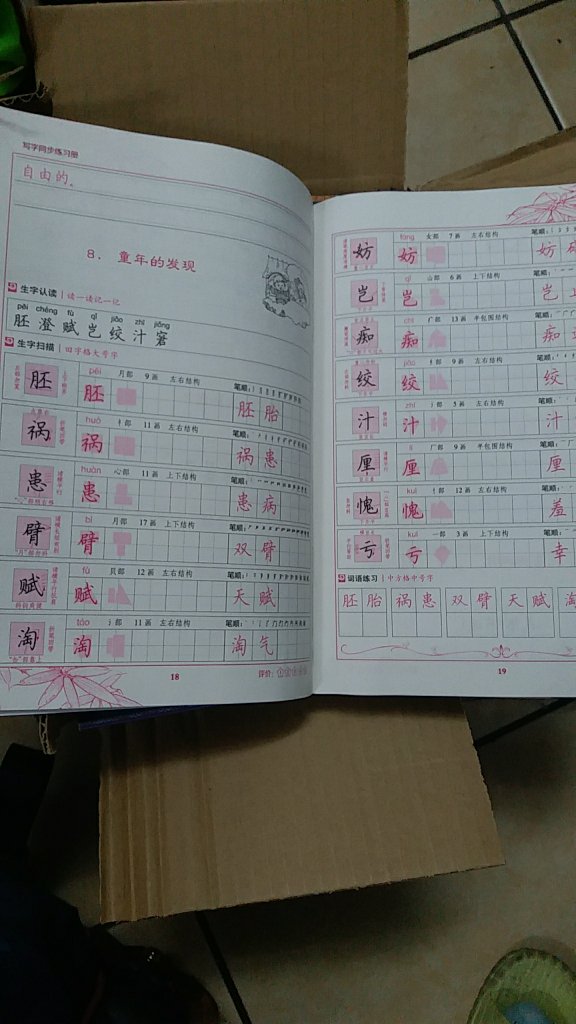 写字同步练习册
自由的。
8. 童年的发现
生字认读 读一读记一记
pēi chéng fù qǐ jiǎo zhī jiǒng
胚 澄 赋 岂 绞 汁 窘
生字扫描 田字格大号字
胚 pēi 月部 9画 左右结构 笔顺:
胚 胚 胎
祸 huò 礻部 11画 左右结构 笔顺:
祸 祸 患
患 huàn 心部 11画 上下结构 笔顺:
患 患 病
臂 bì 月部 17画 上下结构 笔顺:
臂 双 臂
赋 fù 贝部 12画 左右结构 笔顺:
赋 天 赋
淘 táo 氵部 11画 左右结构 笔顺:
淘 淘 气
18 评价:
妨 fáng 女部 7画 左右结构 笔顺:
妨 妨
岂 qǐ 山部 6画 上下结构 笔顺:
岂 岂
痴 chī 疒部 13画 半包围结构 笔顺:
痴 痴
绞 jiǎo 纟部 9画 左右结构 笔顺:
绞 绞
汁 zhī 氵部 5画 左右结构 笔顺:
汁 汁
厘 lí 厂部 9画 半包围结构 笔顺:
厘 厘
愧 kuì 忄部 12画 左右结构 笔顺:
愧 羞
亏 kuī 一部 3画 上下结构 笔顺:
亏 幸
词语练习 中方格中号字
胚胎 祸患 双臂 天赋 淘
19